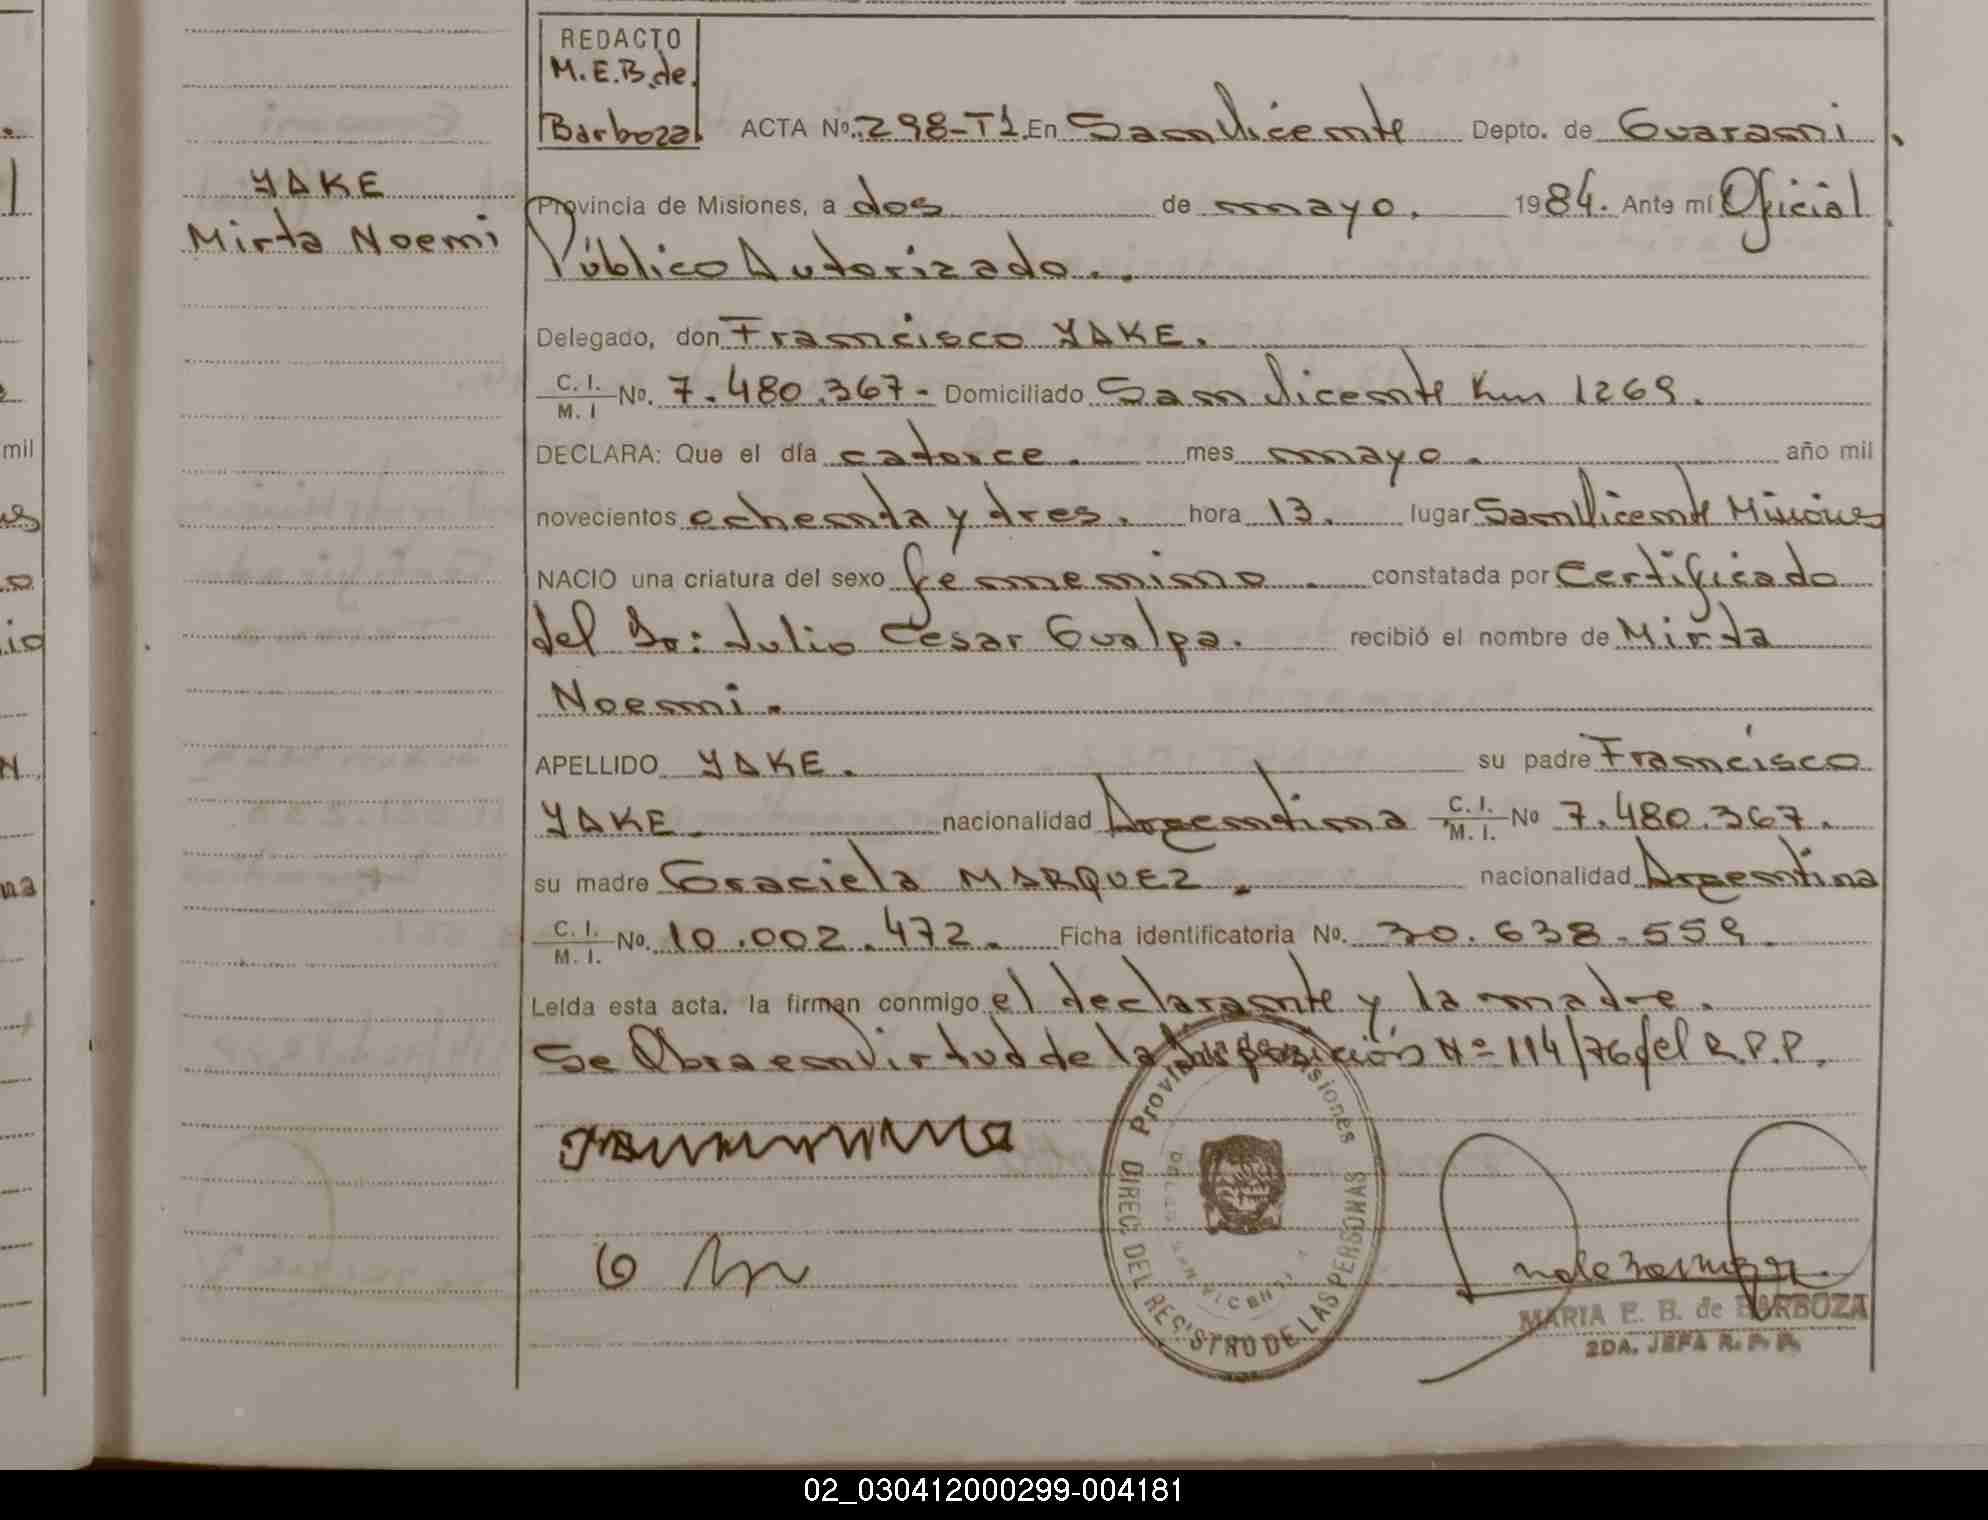 REDACTO
M.E.B. de.
Barboza
ACTA Nº. 298-T1. En San Vicente Depto. de Guarani.
YAKE
Mirta Noemi
Provincia de Misiones, a dos de mayo. 1984. Ante mí Oficial
Público Autorizado..
Delegado, don Francisco YAKE.
C. I. / M. I No. 7.480.367- Domiciliado San Vicente Km 1269.
DECLARA: Que el día catorce. mes mayo. año mil
novecientos ochenta y tres. hora 13. lugar San Vicente Misiones
NACIO una criatura del sexo femenino. constatada por Certificado
del Dr: Julio Cesar Gualpa. recibió el nombre de Mirta
Noemi.
APELLIDO YAKE. su padre Francisco
YAKE. nacionalidad Argentina C. I. / M. I. Nº 7.480.367.
su madre Graciela MARQUEZ. nacionalidad Argentina
C. I. / M. I. No. 10.002.472. Ficha identificatoria No. 30.638.559.
Leída esta acta, la firman conmigo el declarante y la madre.
Se Obra en Virtud de la Disposición Nº 114/76 del R.P.P.
Provincia de Misiones
DIREC. DEL REGISTRO DE LAS PERSONAS
MARIA E. B. de BARBOZA
2DA. JEFA R. P. P.
02_030412000299-004181